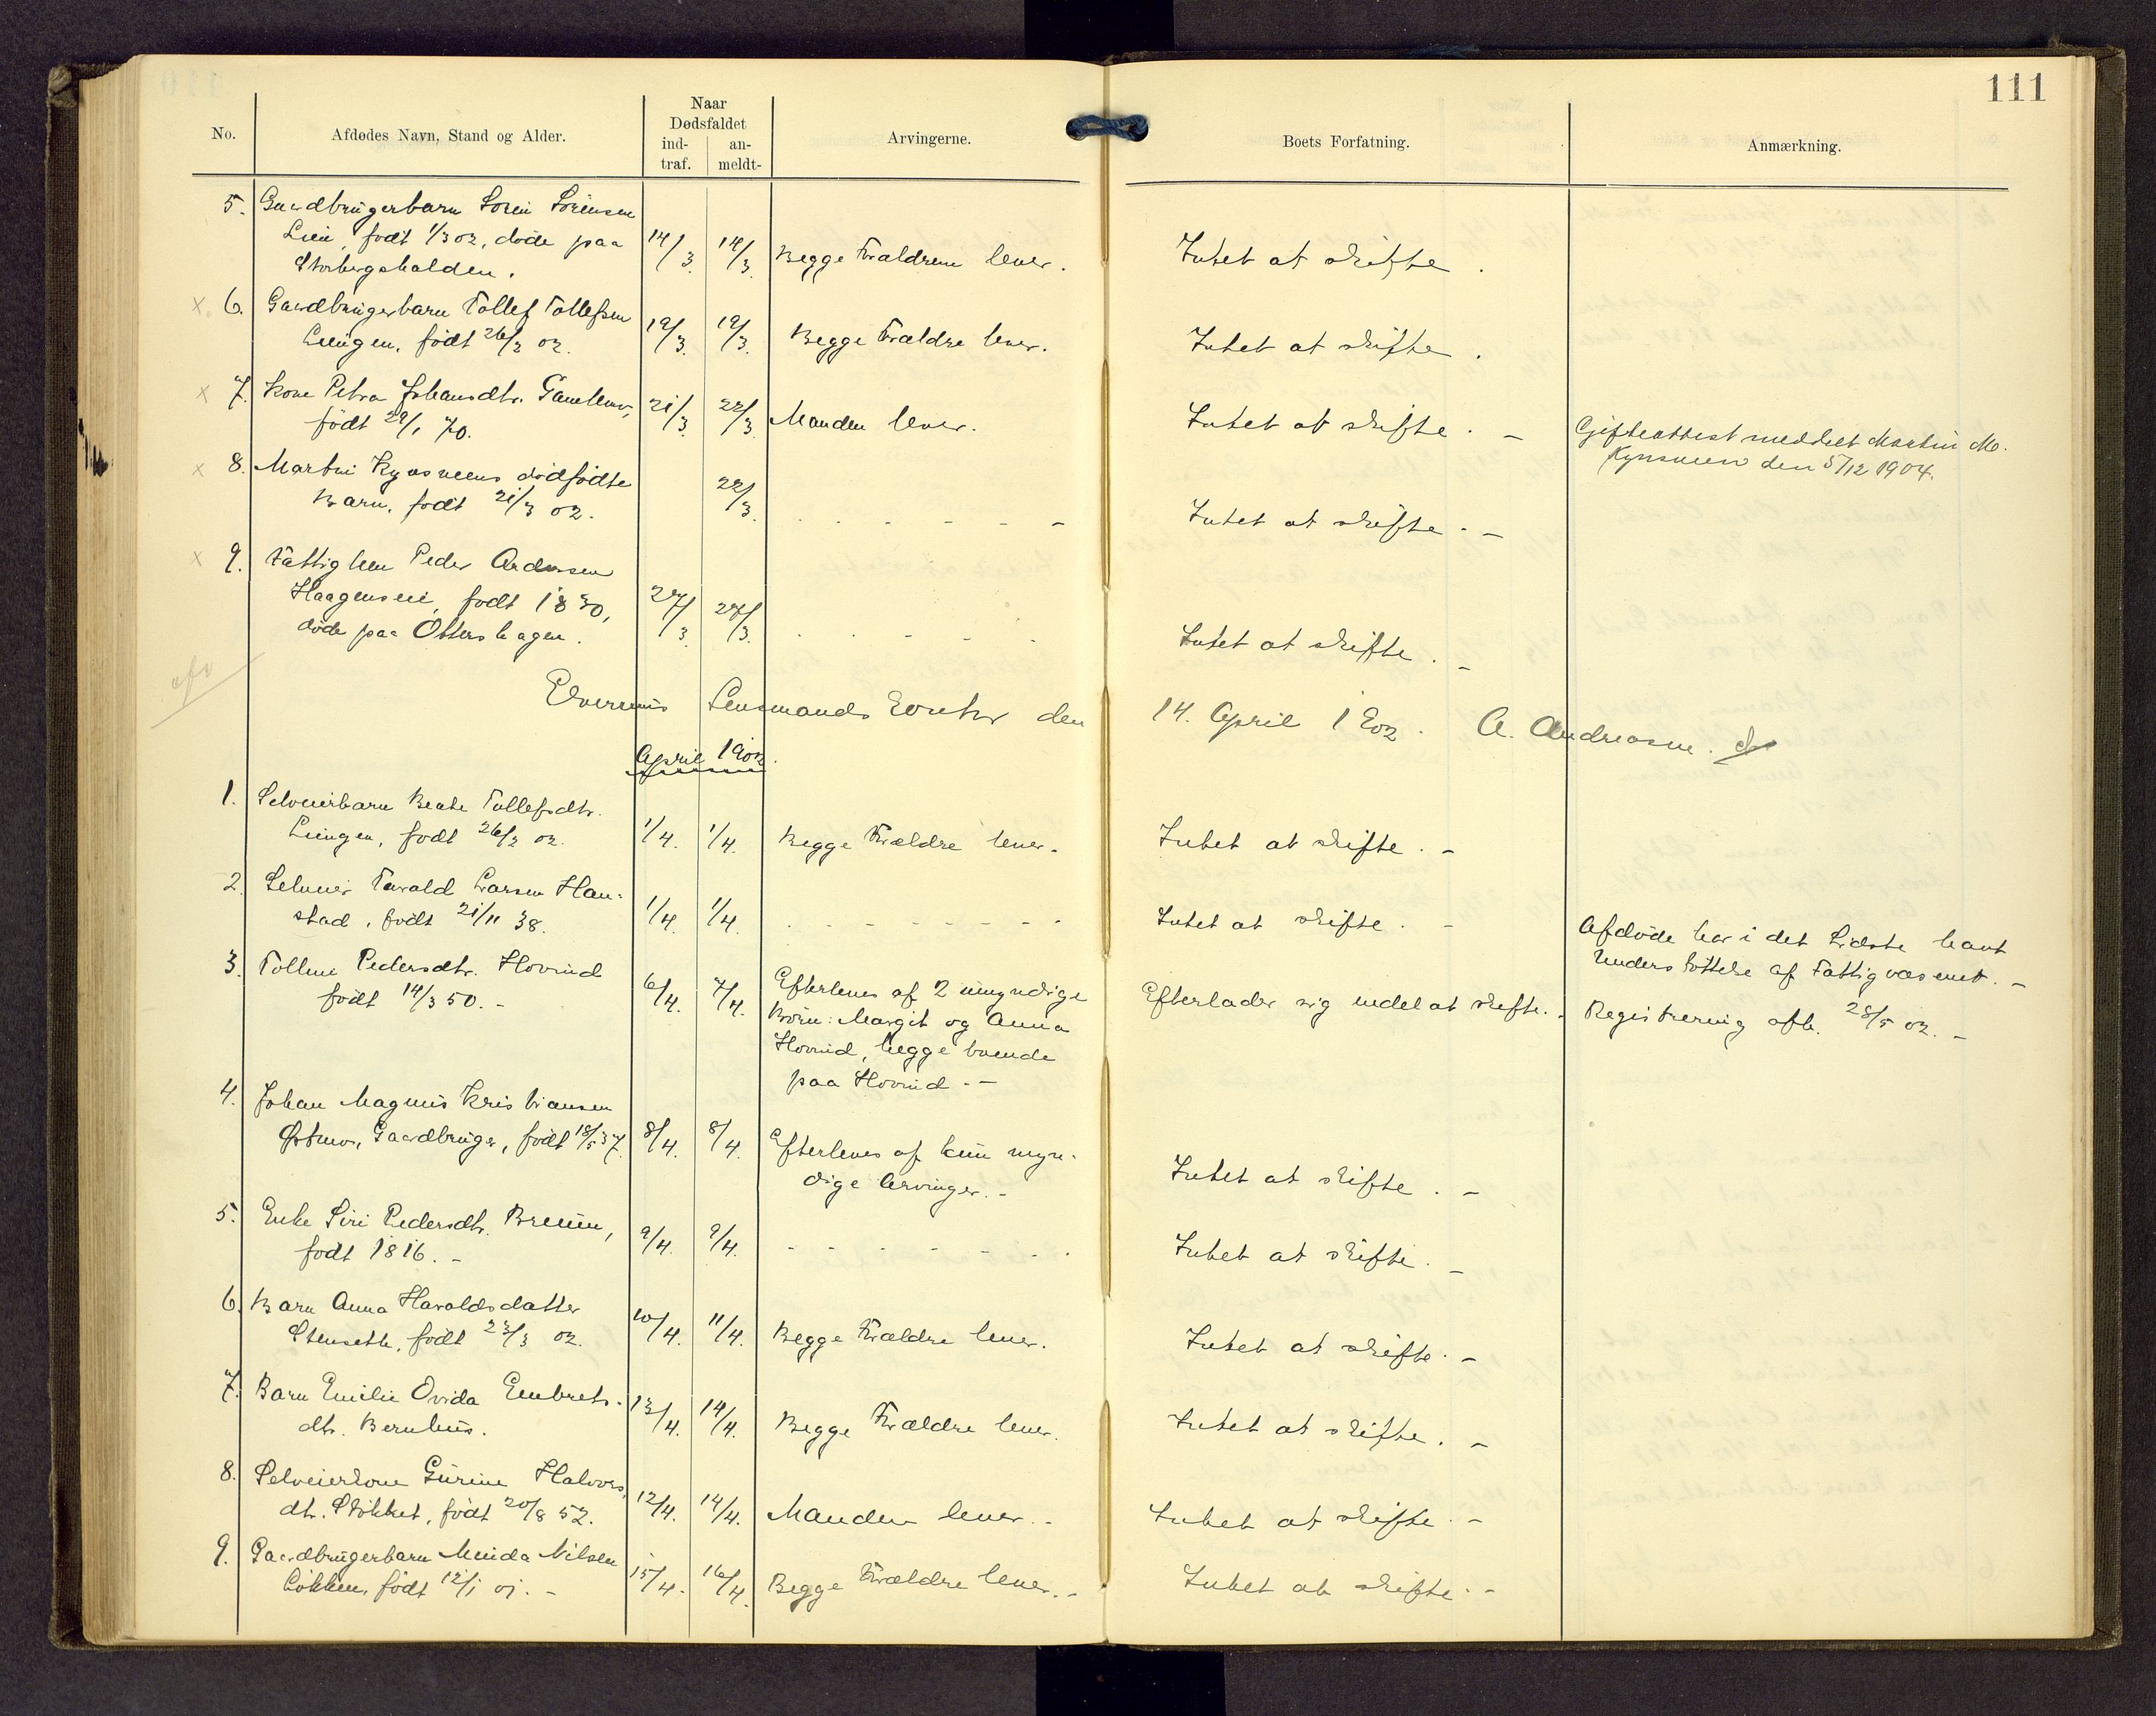 111
No.
Afdødes Navn, Stand og Alder.
Naar
Dødsfaldet
ind-
traf.
an-
meldt-
Arvingerne.
Boets Forfatning.
Anmærkning.
5. Gaardbrugerbarn Soren Sörensen
Lien, født 1/3 02, døde paa
Storbergshalden. 14/3. 14/3. Begge Forældrene lever. Intet at skifte.
x. 6. Gaardbrugerbarn Tollef Tollefsen
Lüngen, født 26/2 02. 19/3. 19/3. Begge Forældre lever. Intet at skifte.
x 7. Kone Petra Johansdtr.
født 29/1 70. 21/3. 22/3. Manden lever. Intet at skifte. - Gifteattest meddelt Martin M.
den 5/12 1904.
x 8. Martin dødfødte
Barn, født 21/3 02. 22/3. - - - - Intet at skifte. -
x 9. Fattiglem Peder Andersen
Haagensen, født 1830,
døde paa Ottershagen. 27/3 27/3. - - - - Intet at skifte. -
Elverums Lensmands Kontor den 14. April 1902. A. Andreasen.
April 1902.
1. Selveierbarn Beate Tollefsdtr.
Lüngen, født 26/2 02. 1/4. 1/4. Begge Forældre lever. Intet at skifte. -
2. Tarald Larsen Han-
stad, født 21/11 38. 1/4. 1/4. - - - - Intet at skifte. - Afdøde har i det Sidste havt
Understøttelse af Fattigvæsenet. -
3. Tolline Pedersdtr. Hovind
født 14/3 50. - 6/4. 7/4. Efterleves af 2 umyndige
Børn: Margit og Anna
Hovind, begge boende
paa Hovind. - Efterlader sig endel at skifte. - Registrering afh. 28/5 02. -
4. Johan Magnus Kristiansen
Østmo, Gaardbruger, født 18/5 37. 8/4. 8/4. Efterleves af kun myn-
dige Arvinger. - Intet at skifte. -
5. Enke Siri Pedersdtr.
født 1816. - 9/4. 9/4. - - - - Intet at skifte. -
6. Barn Anna Haraldsdatter
Stenseth, født 23/3 02. 10/4. 11/4. Begge Forældre lever. Intet at skifte. -
7. Barn Emilie Ovida Embrets-
dtr. Bernhus. 13/4. 14/4. Begge Forældre lever. Intet at skifte. -
8. Selveierkone Gurine Halvors-
dtr. Stökket, født 20/8 52. 12/4. 14/4. Manden lever. - Intet at skifte. -
9. Gaardbrugerbarn Minda Nilsen
Lökken, født 12/1 01. - 15/4. 16/4. Begge Forældre lever. - Intet at skifte. -